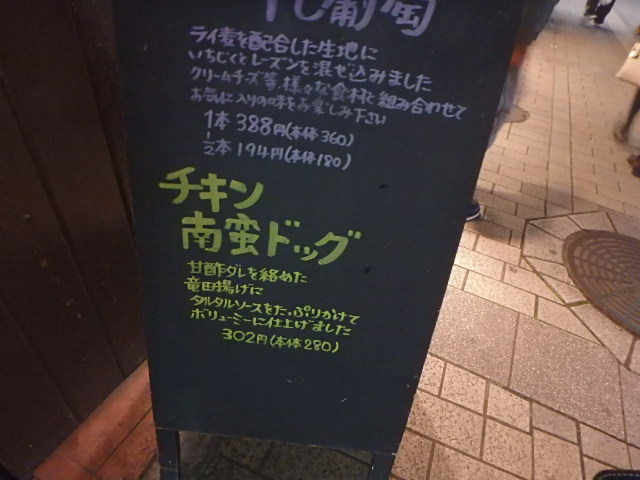 葡萄
ライ麦を配合した生地に
いちじくとレーズンを混ぜ込みました
クリームチーズ等、様々な食材と組み合わせて
お気に入りの味をお楽しみ下さい
1本 388円(本体360)
1/2本 194円(本体180)
チキン
南蛮ドッグ
甘酢ダレを絡めた
竜田揚げに
タルタルソースをたっぷりかけて
ボリューミーに仕上げました
302円(本体280)